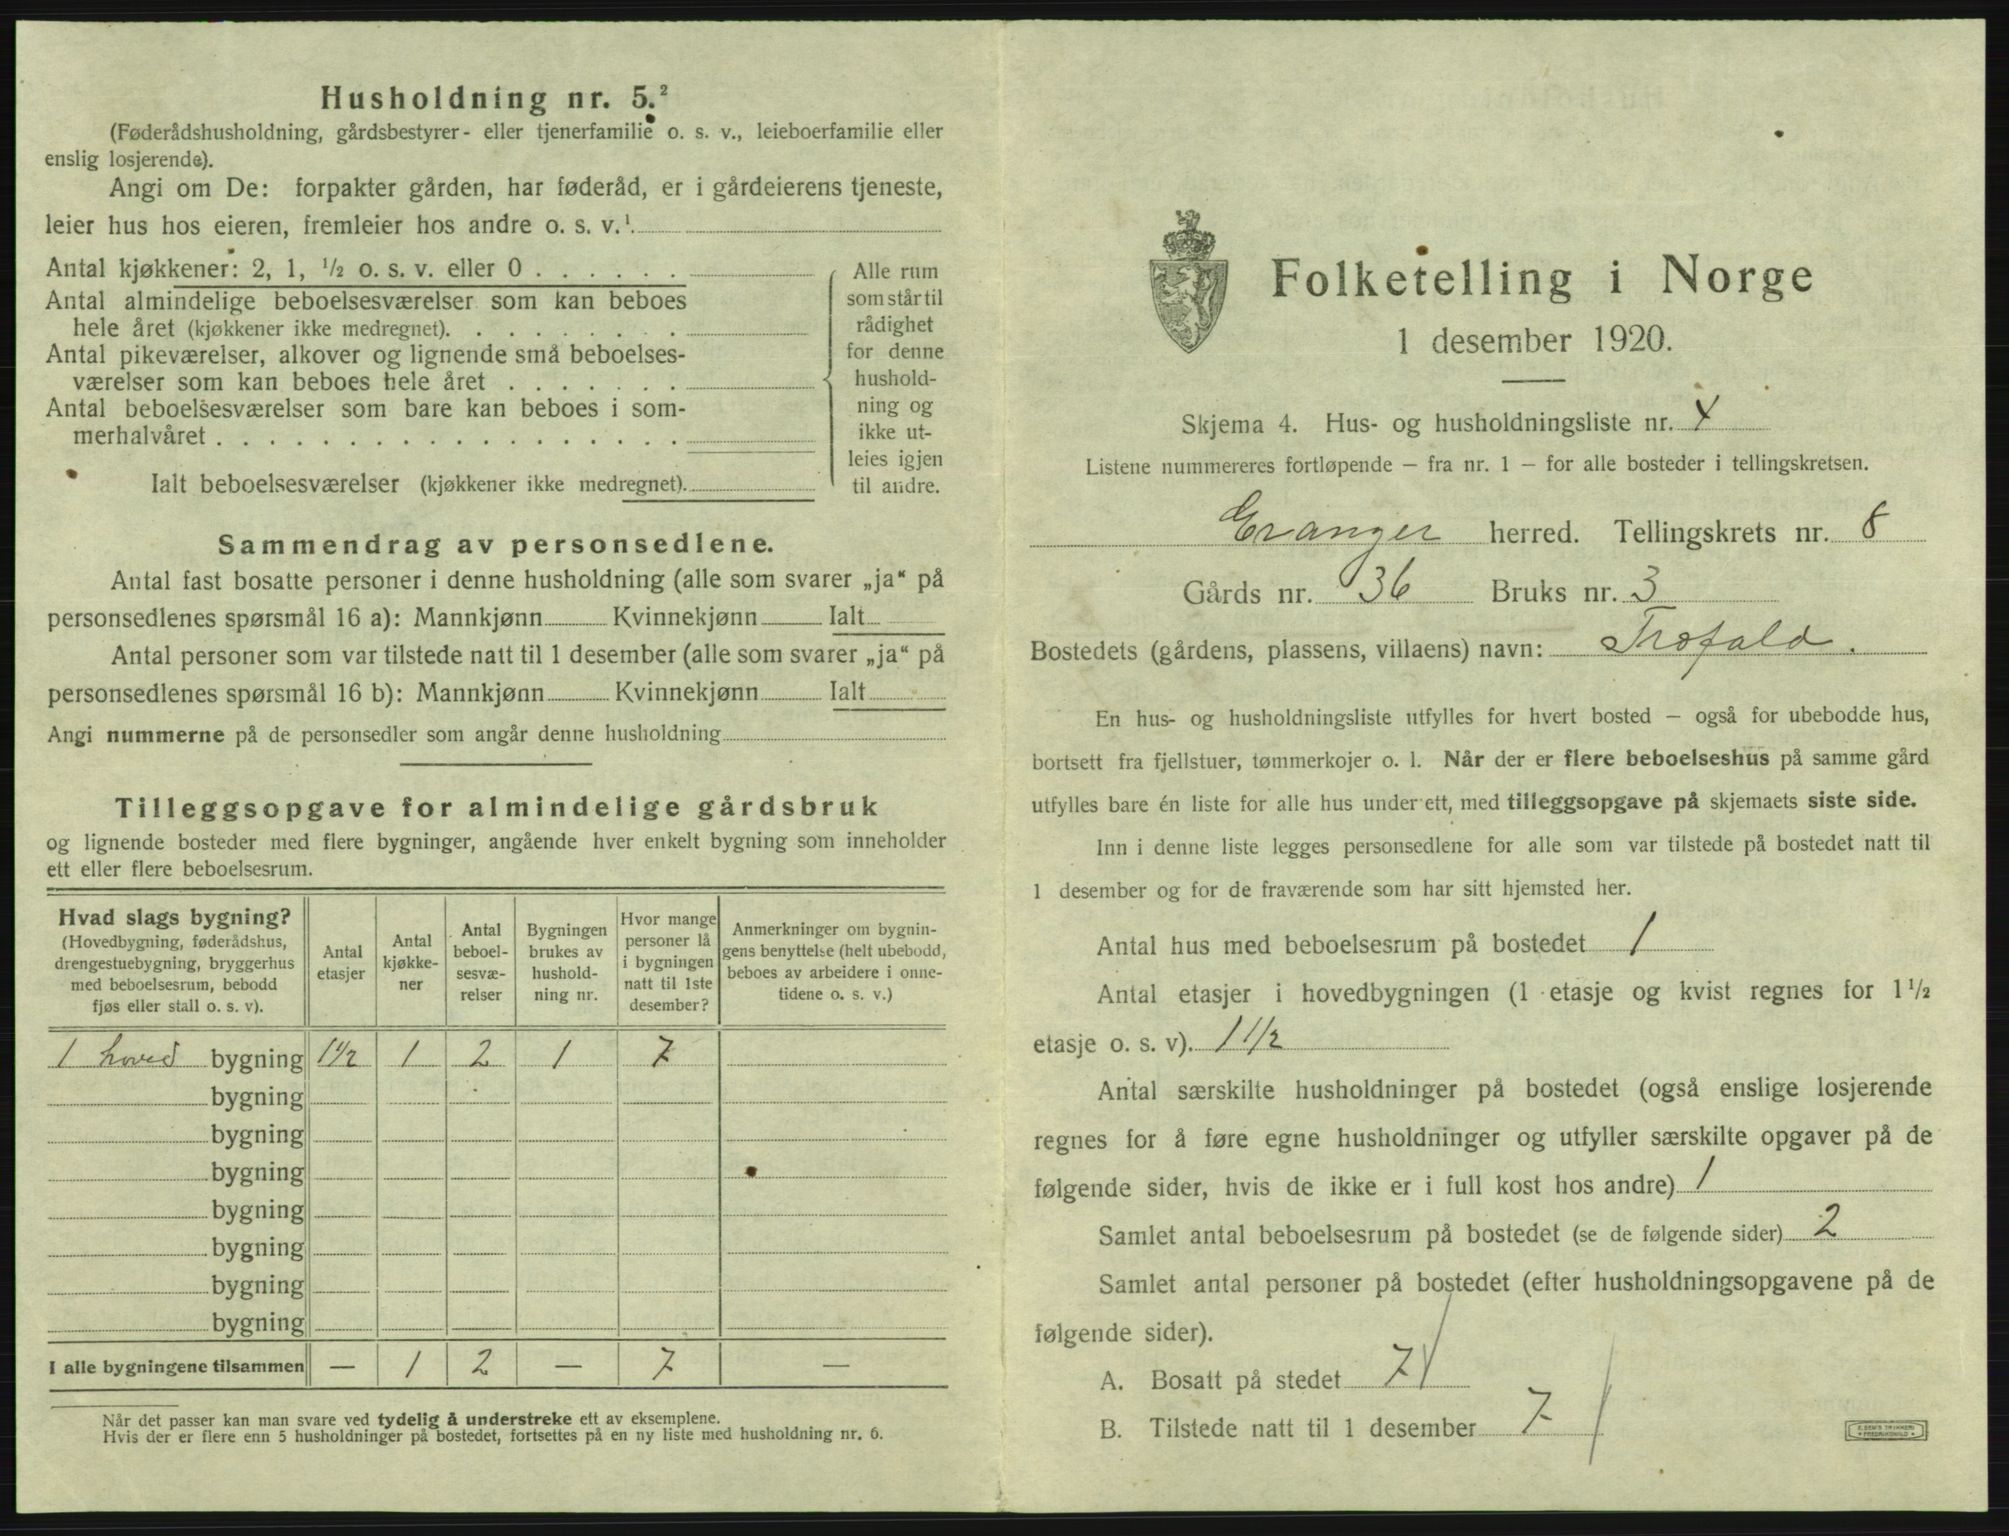 Husholdning nr. 5.²
(Føderådshusholdning, gårdsbestyrer- eller tjenerfamilie o. s. v., leieboerfamilie eller
enslig losjerende).
Angi om De: forpakter gården, har føderåd, er i gårdeierens tjeneste,
leier hus hos eieren, fremleier hos andre o. s. v.¹
Antal kjøkkener: 2, 1, ½ o. s. v. eller 0 . . . . . .
Antal almindelige beboelsesværelser som kan beboes
hele året (kjøkkener ikke medregnet). . . . . . . . .
Antal pikeværelser, alkover og lignende små beboelses-
værelser som kan beboes hele året . . . . . . .
Antal beboelsesværelser som bare kan beboes i som-
merhalvåret . . . . . . . . . . . . . . . . . .
Ialt beboelsesværelser (kjøkkener ikke medregnet).
Alle rum
som står til
rådighet
for denne
hushold-
ning og
ikke ut-
leies igjen
til andre.
Sammendrag av personsedlene.
Antal fast bosatte personer i denne husholdning (alle som svarer „ja“ på
personsedlenes spørsmål 16 a): Mannkjønn Kvinnekjønn Ialt
Antal personer som var tilstede natt til 1 desember (alle som svarer „ja“ på
personsedlenes spørsmål 16 b): Mannkjønn Kvinnekjønn Ialt
Angi nummerne på de personsedler som angår denne husholdning
Tilleggsopgave for almindelige gårdsbruk
og lignende bosteder med flere bygninger, angående hver enkelt bygning som inneholder
ett eller flere beboelsesrum.
Hvad slags bygning?
(Hovedbygning, føderådshus,
drengestuebygning, bryggerhus
med beboelsesrum, bebodd
fjøs eller stall o. s. v).
Antal
etasjer
Antal
kjøkke-
ner
Antal
beboel-
sesvæ-
relser
Bygningen
brukes av
hushold-
ning nr.
Hvor mange
personer lå
i bygningen
natt til 1ste
desember?
Anmerkninger om bygnin-
gens benyttelse (helt ubebodd,
beboes av arbeidere i onne-
tidene o. s. v.)
1 hoved bygning 1½ 1 2 1 7
bygning
bygning
bygning
bygning
bygning
bygning
bygning
I alle bygningene tilsammen — 1 2 — 7 —
Når det passer kan man svare ved tydelig å understreke ett av eksemplene.
Hvis der er flere enn 5 husholdninger på bostedet, fortsettes på en ny liste med husholdning nr. 6.
Folketelling i Norge
1 desember 1920.
Skjema 4. Hus- og husholdningsliste nr. 4
Listene nummereres fortløpende – fra nr. 1 – for alle bosteder i tellingskretsen.
Eranger herred. Tellingskrets nr. 8
Gårds nr. 36 Bruks nr. 3
Bostedets (gårdens, plassens, villaens) navn: Trofald.
En hus- og husholdningsliste utfylles for hvert bosted – også for ubebodde hus,
bortsett fra fjellstuer, tømmerkojer o. l. Når der er flere beboelseshus på samme gård
utfylles bare én liste for alle hus under ett, med tilleggsopgave på skjemaets siste side.
Inn i denne liste legges personsedlene for alle som var tilstede på bostedet natt til
1 desember og for de fraværende som har sitt hjemsted her.
Antal hus med beboelsesrum på bostedet 1
Antal etasjer i hovedbygningen (1 etasje og kvist regnes for 1½
etasje o. s. v). 1½
Antal særskilte husholdninger på bostedet (også enslige losjerende
regnes for å føre egne husholdninger og utfyller særskilte opgaver på de
følgende sider, hvis de ikke er i full kost hos andre) 1
Samlet antal beboelsesrum på bostedet (se de følgende sider) 2
Samlet antal personer på bostedet (efter husholdningsopgavene på de
følgende sider).
A. Bosatt på stedet 7
B. Tilstede natt til 1 desember 7